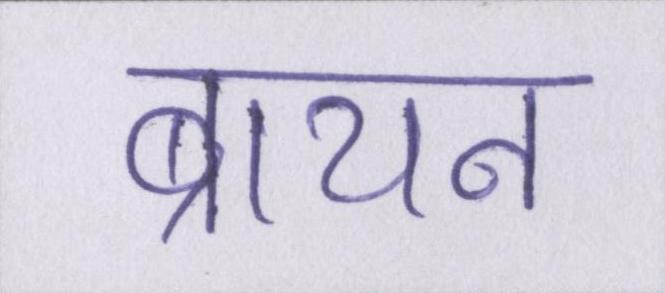 ब्रायन